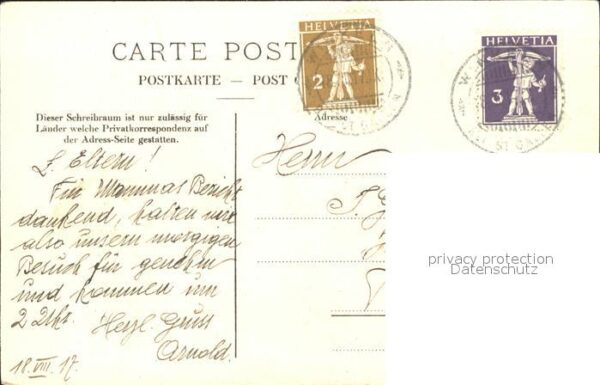 CARTE POST
POSTKARTE — POST
HELVETIA
2
HELVETIA
3
Dieser Schreibraum ist nur zulässig für
Länder welche Privatkorrespondenz auf
der Adress-Seite gestatten.
Adresse
L. Eltern!
Für Mammas Bericht
dankend, halten wir
also unsern morgigen
Besuch für genehm
und kommen um
2 Uhr.
Herzl. Gruss
Arnold.
18.VIII.17.
Herrn
privacy protection
Datenschutz